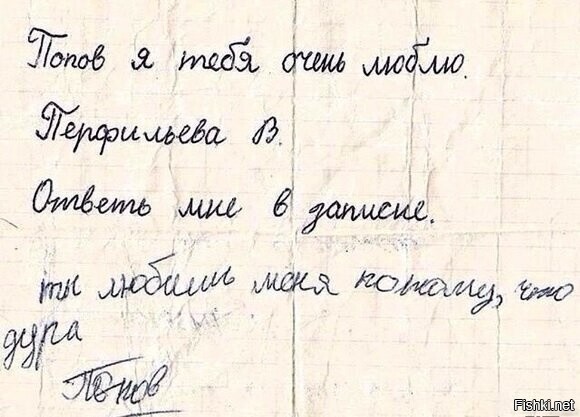 Попов я тебя очень люблю.
Перфильева В.
Ответь мне в записке.
ты любишь меня потому, что
дура
Попов
Fishki.net